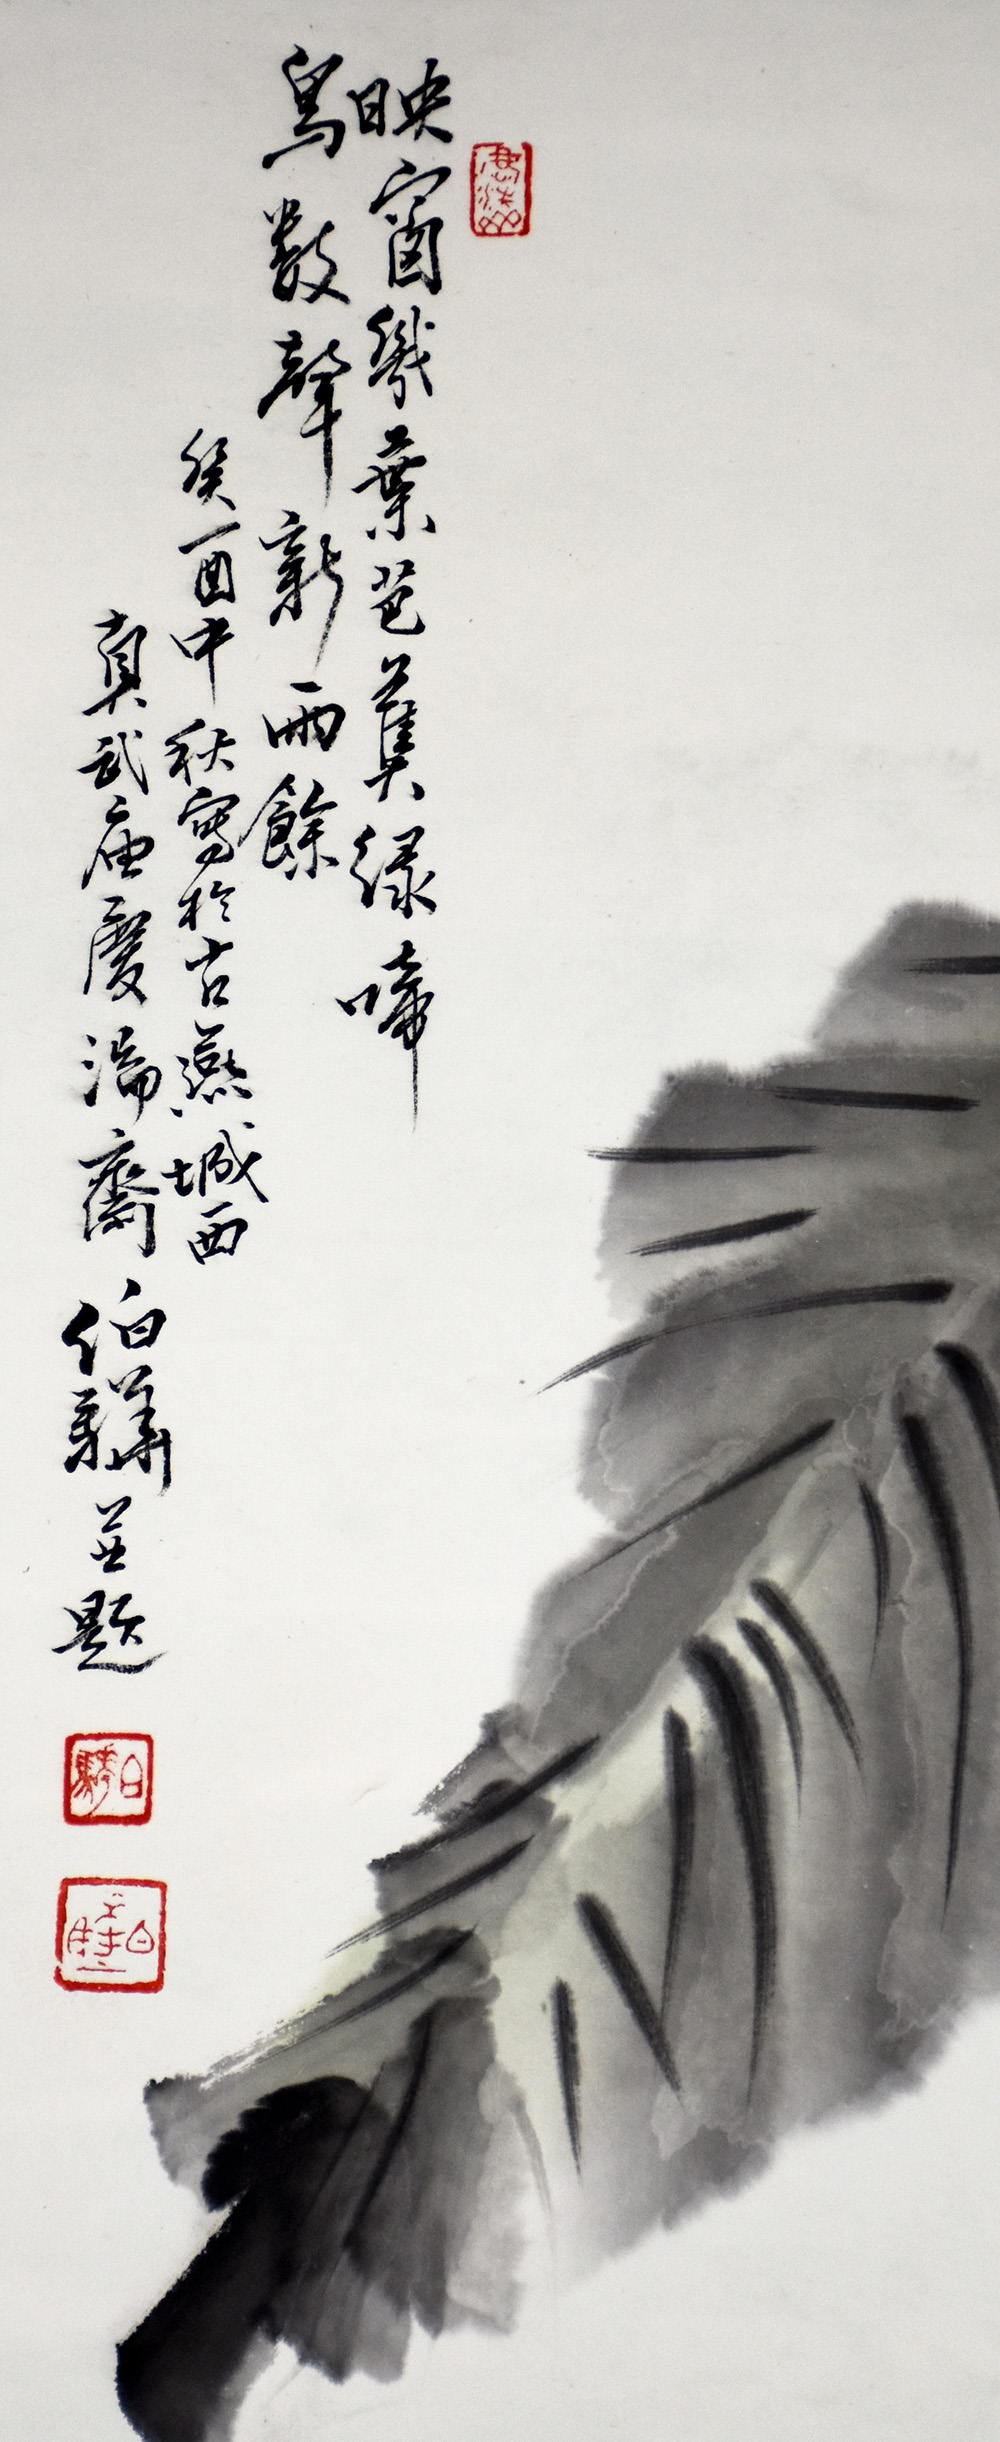 映窗幾葉芭蕉緑啼
鳥数聲新雨餘
癸酉中秋寫於古燕城西
真武庙齋伯驊並題